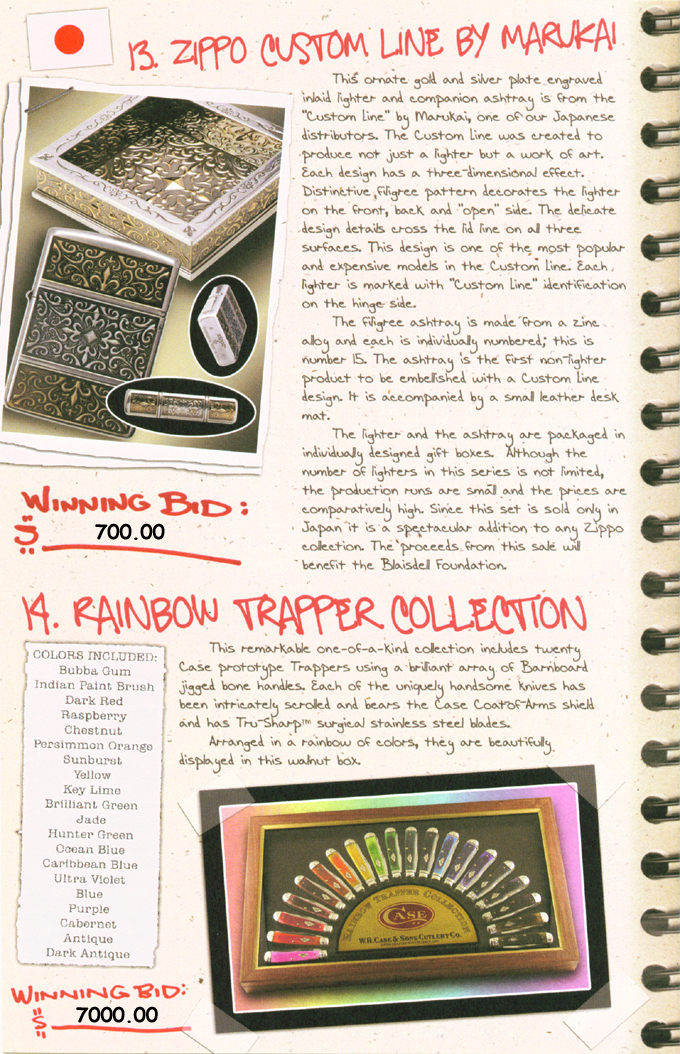 13. ZIPPO CUSTOM LINE BY MARUKAI
This ornate gold and silver plate engraved
inlaid lighter and companion ashtray is from the
"Custom Line" by Marukai, one of our Japanese
distributors. The Custom Line was created to
produce not just a lighter but a work of art.
Each design has a three-dimensional effect.
Distinctive filigree pattern decorates the lighter
on the front, back and "open" side. The delicate
design details cross the lid line on all three
surfaces. This design is one of the most popular
and expensive models in the Custom Line. Each
lighter is marked with "Custom Line" identification
on the hinge side.
The filigree ashtray is made from a zinc
alloy and each is individually numbered; this is
number 15. The ashtray is the first non-lighter
product to be embellished with a Custom Line
design. It is accompanied by a small leather desk
mat.
The lighter and the ashtray are packaged in
individually designed gift boxes. Although the
number of lighters in this series is not limited,
the production runs are small and the prices are
comparatively high. Since this set is sold only in
Japan it is a spectacular addition to any Zippo
collection. The proceeds from this sale will
benefit the Blaisdell Foundation.
WINNING BID:
$ 700.00
14. RAINBOW TRAPPER COLLECTION
COLORS INCLUDED:
Bubba Gum
Indian Paint Brush
Dark Red
Raspberry
Chestnut
Persimmon Orange
Sunburst
Yellow
Key Lime
Brilliant Green
Jade
Hunter Green
Ocean Blue
Caribbean Blue
Ultra Violet
Blue
Purple
Cabernet
Antique
Dark Antique
This remarkable one-of-a-kind collection includes twenty
Case prototype Trappers using a brilliant array of Barnboard
jigged bone handles. Each of the uniquely handsome knives has
been intricately scrolled and bears the Case Coat-of-Arms shield
and has Tru-Sharp™ surgical stainless steel blades.
Arranged in a rainbow of colors, they are beautifully
displayed in this walnut box.
RAINBOW TRAPPER COLLECTION
CASE
W.R. CASE & SONS CUTLERY CO.
WINNING BID:
$ 7000.00